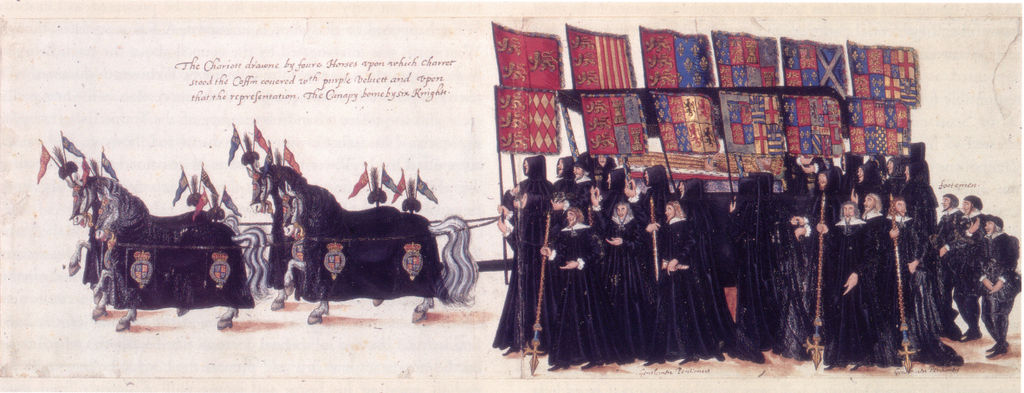 The Chariott drawne by foure Horses vpon which Charret
stood the Coffin couered wth purple Veluett and vpon
that the representation. The Canapy borne by six Knights.
footemen.
Gentlemen Pentioners
Gentlemen Pentioners